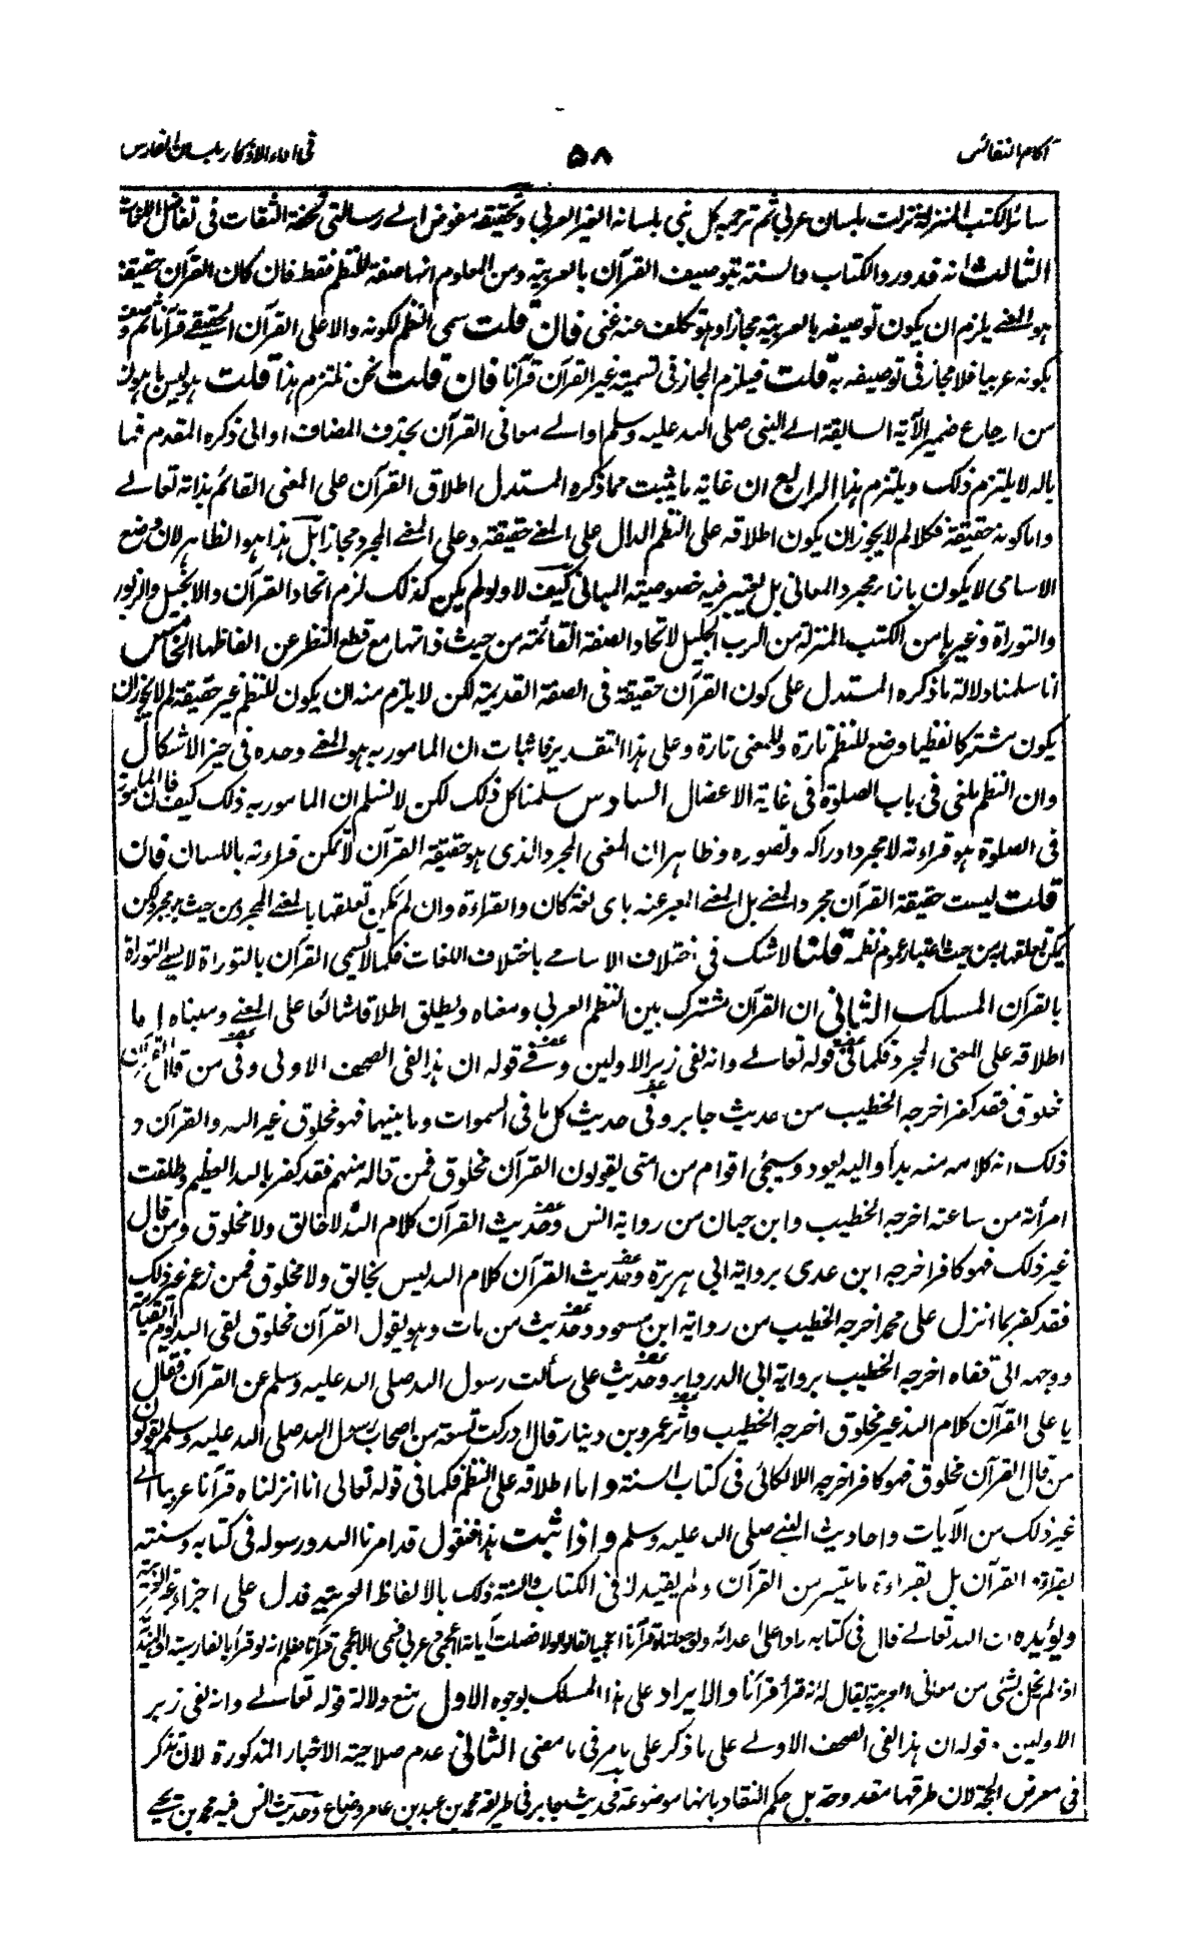 آكام النفائس
٥٨
فى اداء الاذكار بلسان الفارس
سائر الكتب المنزلة نزلت بلسان عربي ثم ترجمه كل نبي بلسانه الغير العربي وتحقيقه مفوض الے رسالتى تحفة الثقات فى تفاضل اللغات
الثالث انه قد ورد الكتاب والسنة بتوصيف القرآن بالعربية ومن المعلوم انها صفة للنظم فقط فان كان القرآن حقيقة
هو المعنے يلزم ان يكون توصيفه بالعربية مجازا وهو تكلف عنه غنى فان قلت سمى النظم لكونه دالا على القرآن الحقيقے قرآنا ثم وصف
بكونه عربيا فلا مجاز فى توصيفه به قلت فيلزم المجاز فى تسمية غير القرآن قرآنا فان قلت نحن نلتزم هذا قلت هو ليس باهون
من ارجاع ضمير الآية السابقة الے النبى صلى الله عليه وسلم او الے معانى القرآن بحذف المضاف او الى ذكره المقدم فما
باله لا يلتزم ذلك ويلتزم هذا الرابع ان غاية ما يثبت مما ذكره المستدل اطلاق القرآن على المعنى القائم بذاته تعالے
واما كونه حقيقة فكلا لم لا يجوز ان يكون اطلاقه على النظم الدال على المعنے حقيقة وعلى المعنے المجرد مجازا بل هذا هو الظاهر لان وضع
الاسامى لا يكون بازاء مجرد المعانى بل يعتبر فيه خصوصية المبانى كيف لا ولو لم يكن كذلك لزم اتحاد القرآن والانجيل والزبور
والتوراة وغيرها من الكتب المنزلة من الرب الجليل لاتحاد الصفة القائمة من حيث ذاتها مع قطع النظر عن الفاظها الخامس
انا سلمنا دلالة ما ذكره المستدل على كون القرآن حقيقة فى الصفة القديمة لكن لا يلزم منه ان يكون للنظم غير حقيقة لم لا يجوز ان
يكون مشتركا لفظيا وضع للنظم تارة وللمعنى تارة وعلى هذا التقدير فاثبات ان المامور به هو المعنے وحده فى حيز الاشكال
وان النظم ملغى فى باب الصلوة فى غاية الاعضال السادس سلمنا كل ذلك لكن لا نسلم ان المامور به ذلك كيف فان المامور به
فى الصلوة هو قراءته لا مجرد ادراكه وتصوره وظاهر ان المعنى المجرد الذى هو حقيقة القرآن لا يمكن قراءته باللسان فان
قلت ليست حقيقة القرآن مجرد المعنے بل المعنے المعبر عنه باى لغة كان والقراءة وان لم يكن تعلقها بالمعنے المجرد من حيث هو مجرد لكن
يمكن تعلقها به من حيث اعتبار عموم نظمه قلنا لا شك فى اختلاف الاسامے باختلاف اللغات فكما لا يسمى القرآن بالتوراة لا يسمے التوراة
بالقرآن المسلك الثانى ان القرآن مشترك بين النظم العربى ومعناه ويطلق اطلاقا شائعا على المعنے ومبناه اما
اطلاقه على المعنى المجرد فكما فى قوله تعالے وانه لفى زبر الاولين وفے قوله ان هذا لفى الصحف الاولى وفى من قال القرآن
مخلوق فقد كفر اخرجه الخطيب من حديث جابر وفى حديث كل ما فى السموات وما بينهما فهو مخلوق غير الله والقرآن و
ذلك انه كلامه منه بدأ واليه يعود وسيجئ اقوام من امتى يقولون القرآن مخلوق فمن قاله منهم فقد كفر بالله العظيم وطلقت
امرأته من ساعته اخرجه الخطيب وابن حبان من رواية انس وحديث القرآن كلام الله لا خالق ولا مخلوق ومن قال
غير ذلك فهو كافر اخرجه ابن عدى برواية ابى هريرة وحديث القرآن كلام الله ليس بخالق ولا مخلوق فمن زعم غير ذلك
فقد كفر بما انزل على محمد اخرجه الخطيب من رواية ابن مسعود وحديث من مات وهو يقول القرآن مخلوق لقى الله يوم القيامة
ووجهه الى قفاه اخرجه الخطيب برواية ابى الدرداء وحديث على سألت رسول الله صلى الله عليه وسلم عن القرآن فقال
يا على القرآن كلام الله غير مخلوق اخرجه الخطيب واثر عمرو بن دينار قال ادركت تسعة من اصحاب رسول الله صلى الله عليه وسلم يقولون
من قال القرآن مخلوق فهو كافر اخرجه اللالكائى فى كتاب السنة واما اطلاقه على النظم فكما فى قوله تعالى انا انزلناه قرآنا عربيا الے
غير ذلك من الآيات واحاديث النبے صلى الله عليه وسلم واذا ثبت هذا فنقول قد امرنا الله ورسوله فى كتابه وسنته
بقراءة القرآن بل بقراءة ما تيسر من القرآن ولم يقيد لا فى الكتاب والسنة ذلك بالالفاظ العربية فدل على اجزاء غير العربية
ويؤيده ان الله تعالے قال فى كتابه ردا على اعدائه ولو جعلناه قرآنا اعجميا لقالوا لولا فصلت آياته ااعجمى وعربى فسمى الاعجمى قرآنا فعلم انه لو قرأ بالفارسية او الهندية
اذا لم يخل بشئ من معانى العربية يقال له انه قرأ قرآنا والايراد على هذا المسلك بوجوه الاول بمنع دلالة قوله تعالے وانه لفى زبر
الاولين وقوله ان هذا لفى الصحف الاولے على ما ذكر على ما مر فى ما مضى الثانى عدم صلاحية الاخبار المذكورة لان تذكر
فى معرض الحجة لان طرقها مقدوحة بل حكم النقاد بانها موضوعة فحديث جابر فى طريقه محمد بن عبد بن عامر وضاع وحديث انس فيه محمد بن يحيے